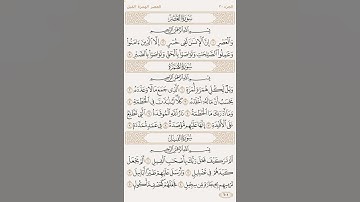 الجزء ٣٠
العصر الهمزة الفيل
سُورَةُ العَصْرِ
بِسْمِ ٱللَّهِ ٱلرَّحْمَٰنِ ٱلرَّحِيمِ
وَٱلْعَصْرِ ١ إِنَّ ٱلْإِنسَٰنَ لَفِى خُسْرٍ ٢ إِلَّا ٱلَّذِينَ ءَامَنُوا۟
وَعَمِلُوا۟ ٱلصَّٰلِحَٰتِ وَتَوَاصَوْا۟ بِٱلْحَقِّ وَتَوَاصَوْا۟ بِٱلصَّبْرِ ٣
سُورَةُ الهُمَزَةِ
بِسْمِ ٱللَّهِ ٱلرَّحْمَٰنِ ٱلرَّحِيمِ
وَيْلٌ لِّكُلِّ هُمَزَةٍ لُّمَزَةٍ ١ ٱلَّذِى جَمَعَ مَالًا وَعَدَّدَهُۥ ٢
يَحْسَبُ أَنَّ مَالَهُۥٓ أَخْلَدَهُۥ ٣ كَلَّا ۖ لَيُنۢبَذَنَّ فِى ٱلْحُطَمَةِ ٤
وَمَآ أَدْرَىٰكَ مَا ٱلْحُطَمَةُ ٥ نَارُ ٱللَّهِ ٱلْمُوقَدَةُ ٦ ٱلَّتِى تَطَّلِعُ
عَلَى ٱلْأَفْـِٔدَةِ ٧ إِنَّهَا عَلَيْهِم مُّؤْصَدَةٌ ٨ فِى عَمَدٍ مُّمَدَّدَةٍۭ ٩
سُورَةُ الفِيلِ
بِسْمِ ٱللَّهِ ٱلرَّحْمَٰنِ ٱلرَّحِيمِ
أَلَمْ تَرَ كَيْفَ فَعَلَ رَبُّكَ بِأَصْحَٰبِ ٱلْفِيلِ ١ أَلَمْ يَجْعَلْ
كَيْدَهُمْ فِى تَضْلِيلٍ ٢ وَأَرْسَلَ عَلَيْهِمْ طَيْرًا أَبَابِيلَ ٣
تَرْمِيهِم بِحِجَارَةٍ مِّن سِجِّيلٍ ٤ فَجَعَلَهُمْ كَعَصْفٍ مَّأْكُولٍۭ ٥